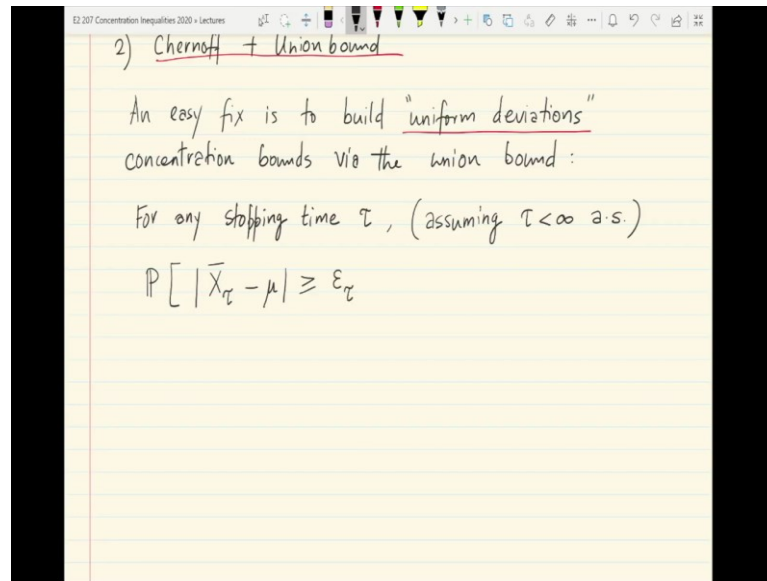 E2 207 Concentration Inequalities 2020 » Lectures
2) Chernoff + Union bound
An easy fix is to build "uniform deviations"
concentration bounds via the union bound :
For any stopping time τ, (assuming τ<∞ a.s.)
ℙ[ |X̄_τ - μ| ≥ ε_τ